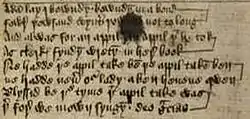 Adam lay i bowndyn bowndyn in a bond
fowr þowsand wynter þowt he not to long
And al was for an appil an appil þt he tok
As clerkis fyndyn wretyn in here book
Ne hadde þe appil take ben þe appil take ben
ne hadde neuer our lady a ben heuene qwen
Blyssid be þe tyme þt appil take was
þer fore we mown syngyn deo gracias